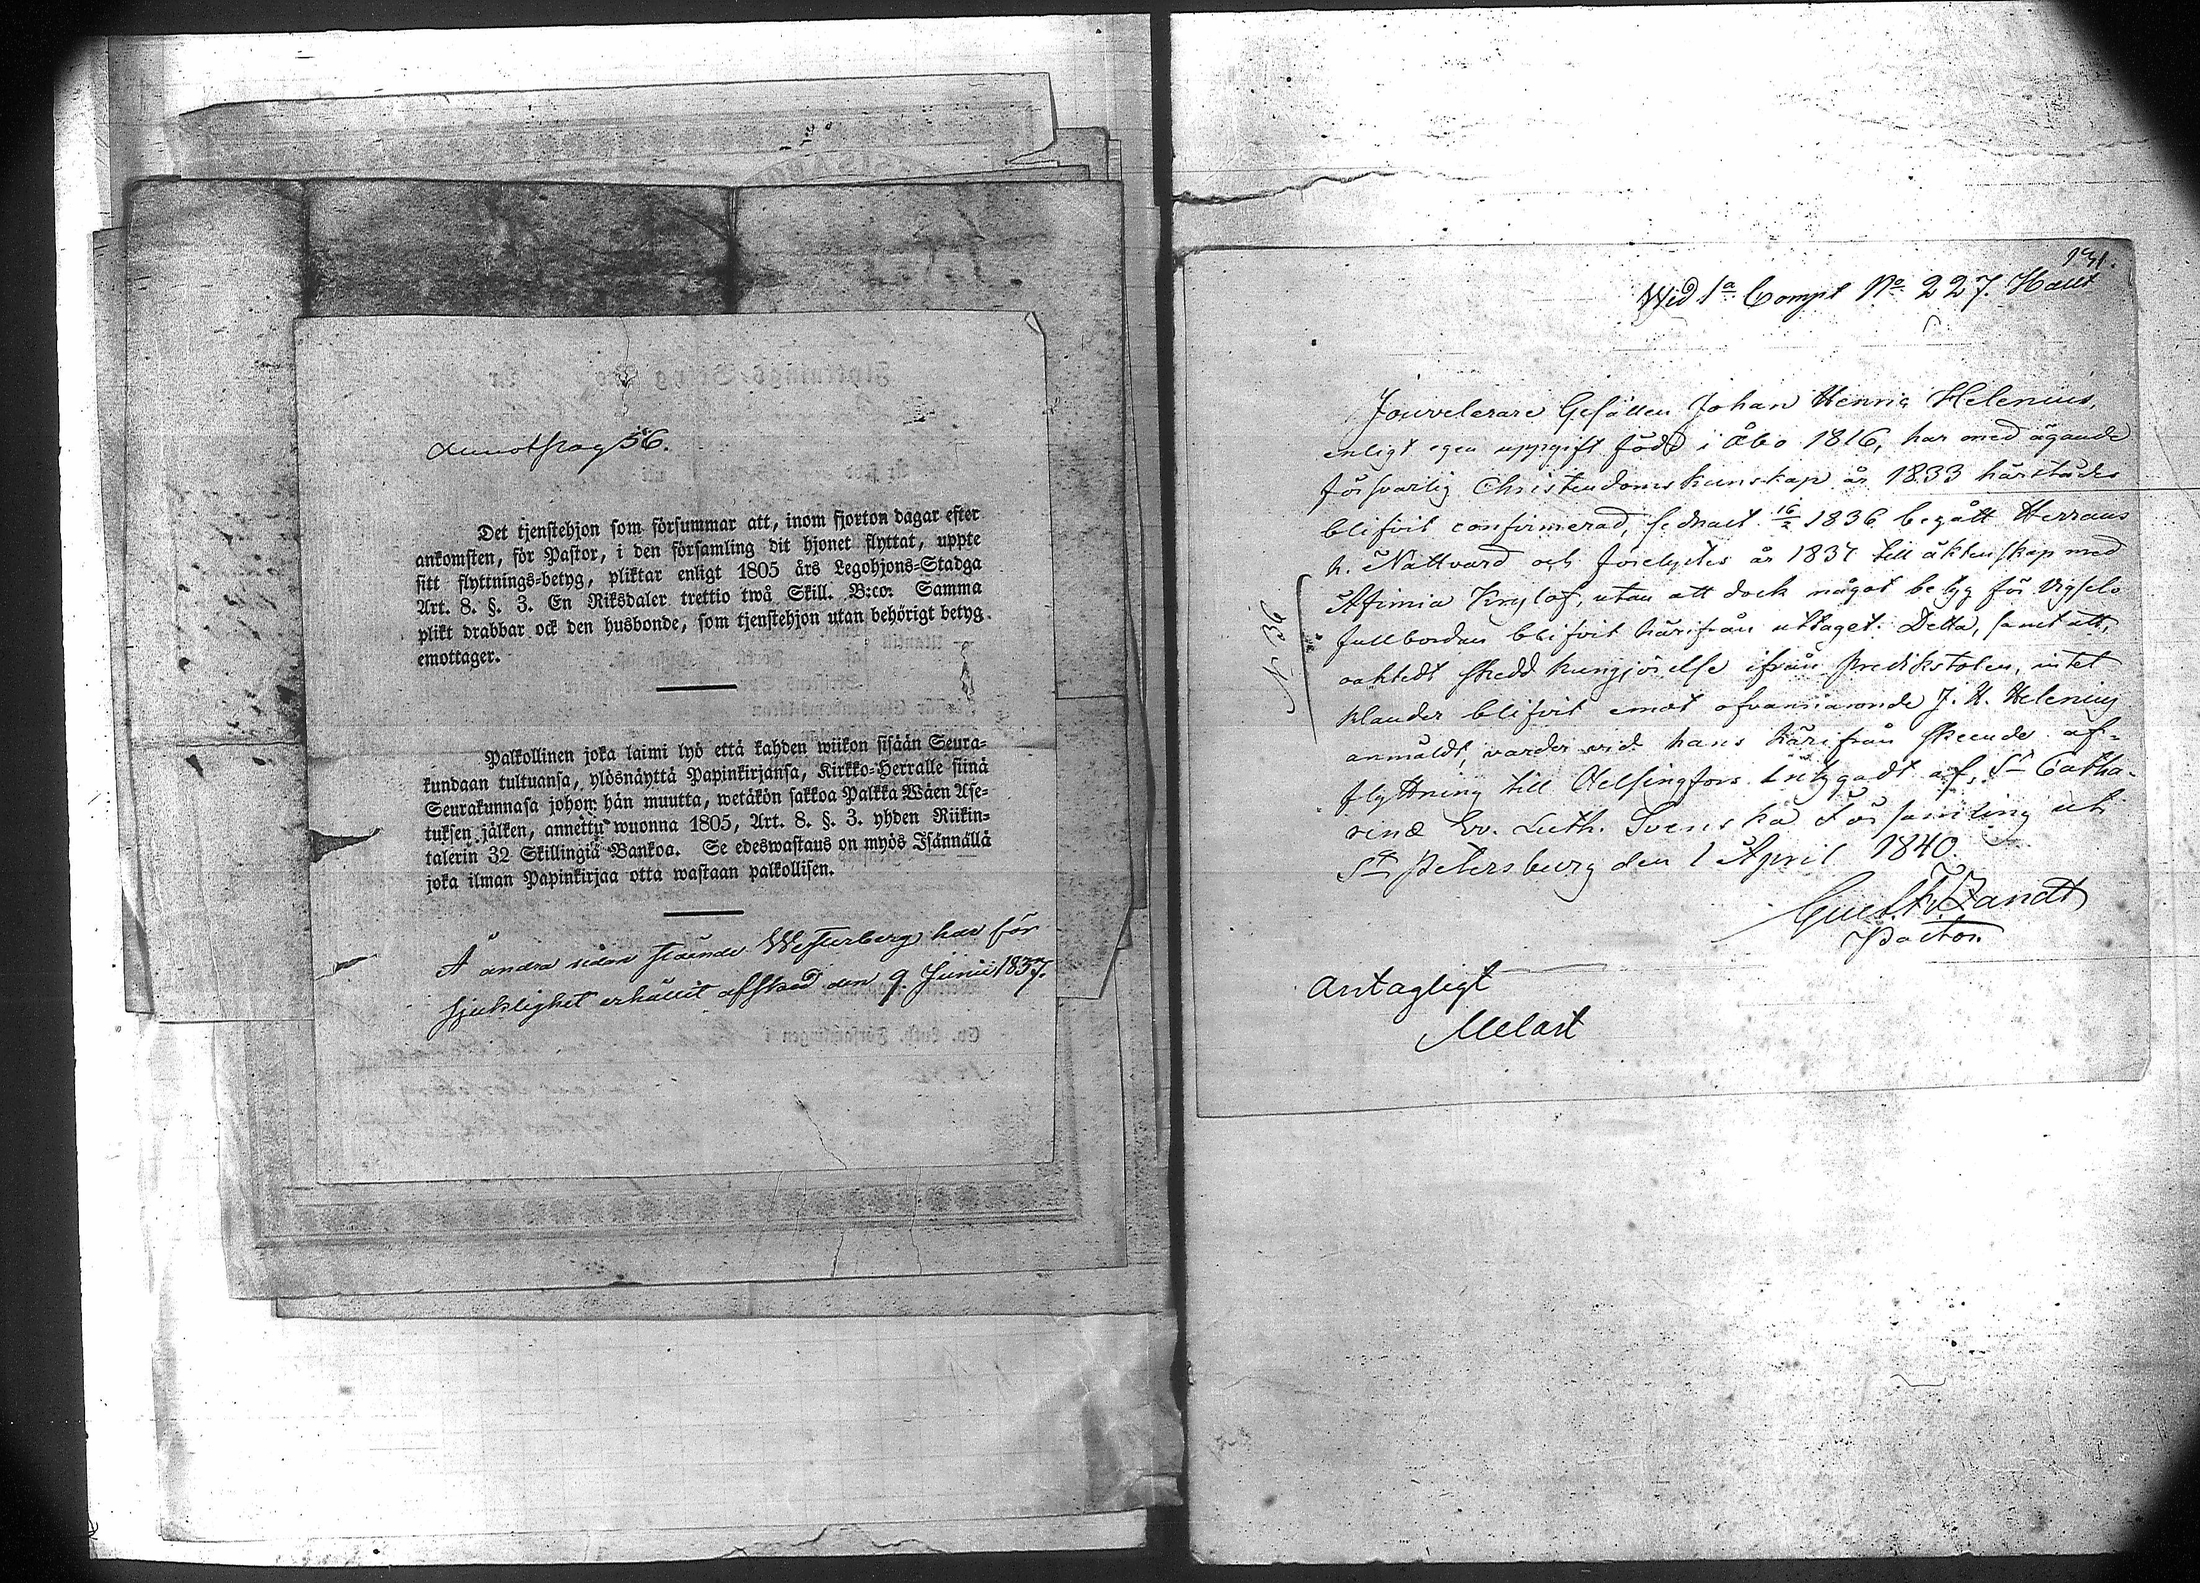 56.
Det tjenstehjon som försummar att, inom fjorton dagar efter
ankomsten, för Pastor, i den församling dit hjonet flyttat, uppte
sitt flyttnings-betyg, pliktar enligt 1805 års Legohjons-Stadga
Art. 8. §. 3. En Riksdaler trettio twå Skill. B:co. Samma
plikt drabbar ock den husbonde, som tjenstehjon utan behörigt betyg
emottager.
Palkollinen joka laimi lyö että kahden wiikon sisään Seura-
kundaan tultuansa, ylösnäyttä Papinkirjansa, Kirkko-Herralle siinä
Seurakunnasa johon hän muutta, wetäkön sakkoa Palkka Wäen Ase-
tuksen jälken, annettu wuonna 1805, Art. 8. §. 3. yhden Riikin-
talerin 32 Skillingiä Bankoa. Se edeswastaus on myös Isännällä
joka ilman Papinkirjaa otta wastaan palkollisen.
Å andra sidan stående Westerberg har för
sjuklighet erhållit afsked den 9. Junii 1837.
Ev. Luth. Församlingen i
131.
Wid 1a Compt No 227.
Jouvelerare Gesällen Johan Henric Helenius,
enligt egen uppgift född i Åbo 1816, har med ägande
försvarlig Christendoms kunskap år 1833 härstädes
blifvit confirmerad, sednast 16/2 1836 begått Herrans
h. Nattvard och förelystes år 1837 till äktenskap med
Afimia Krylof, utan att dock något betyg för vigsels
fullbordan blifvit härifrån uttaget. Detta, samt att,
oaktadt skedd kungjörelse ifrån predikstolen, intet
klander blifvit emot ofvannämnde J. H. Helenius
anmäldt, varder vid hans härifrån skeende af-
flyttning till Helsingfors intygadt af St Catha-
rinæ Ev. Luth. Svenska Församling uti
St Petersburg den 1 April 1840.
Gust. Fr. Zandt
Pastor.
No 36
Antagligt
Melart